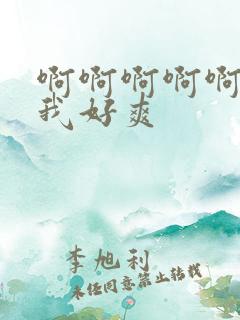 啊啊啊啊啊
我好爽
李旭利
未经同意禁止转载